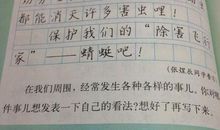 都能消灭许多害虫哩！
保护我们的“除害飞行
家”——蜻蜓吧！
在我们周围，经常发生各种各样的事儿，你对哪
件事儿想发表一下自己的看法？想好了再写下来